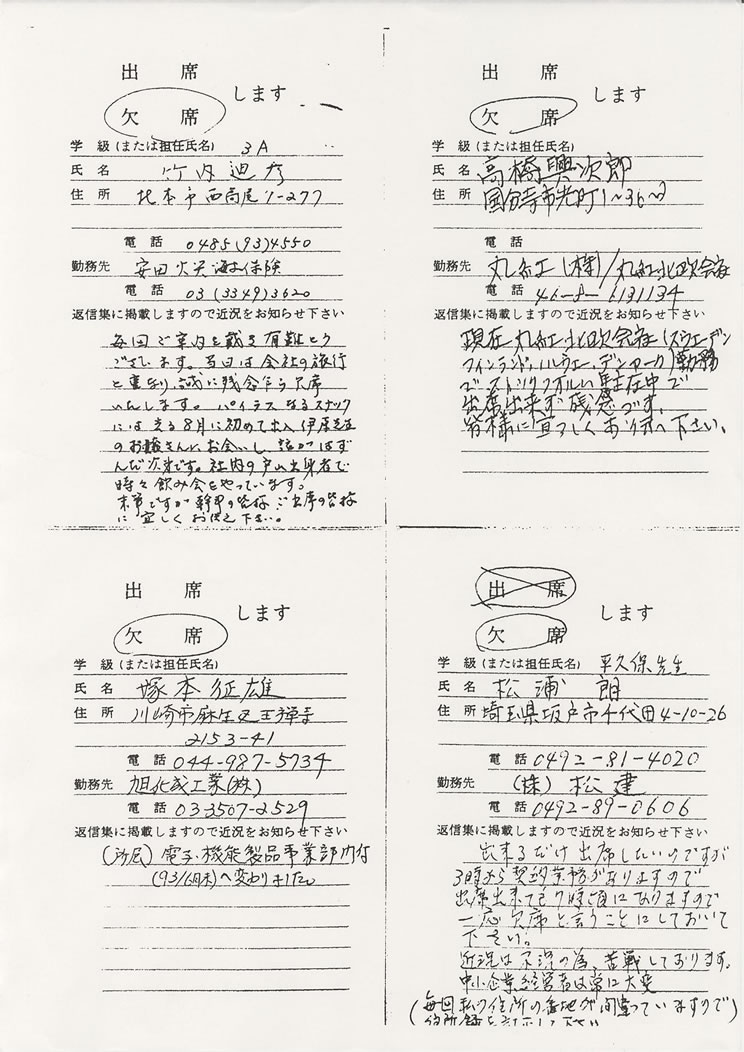 出　席
欠　席
します
学　級 (または担任氏名) 3A
氏　名 竹内迪彦
住　所 北本市西高尾7-277
電　話 0485(93)4550
勤務先 安田火災海上保険
電　話 03(3349)3620
返信集に掲載しますので近況をお知らせ下さい
毎回ご案内を戴き有難とう
ございます。当日は会社の旅行
と重なり誠に残念乍ら欠席
いたします。パイラスなるスナック
には去る8月に初めて出入伊原先生
のお嬢さんにお会いし、話がはず
んだ次第です。社内の戸山出身者で
時々飲み会をやっています。
末筆ですが幹事の皆様、ご出席の皆様
に宜しくお伝え下さい。
出　席
欠　席
します
学　級 (または担任氏名)
氏　名 高橋興次郎
住　所 国分寺市光町1~36~2
電　話
勤務先 丸紅(株)/丸紅北欧会社
電　話 46-8-6131134
返信集に掲載しますので近況をお知らせ下さい
現在丸紅北欧会社(スウェーデン
フィンランド、ノルウェー、デンマーク)勤務
でストックホルム駐在中で
出席出来ず残念です。
皆様に宜しくお伝え下さい。
出　席
欠　席
します
学　級 (または担任氏名)
氏　名 塚本征雄
住　所 川崎市麻生区王禅寺
2153-41
電　話 044-987-5734
勤務先 旭化成工業(株)
電　話 03-3507-2529
返信集に掲載しますので近況をお知らせ下さい
(所属) 電子・機能製品事業部門付
(93/6月末)へ変わりました
出　席
欠　席
します
学　級 (または担任氏名) 平久保先生
氏　名 松浦　朗
住　所 埼玉県坂戸市千代田4-10-26
電　話 0492-81-4020
勤務先 (株) 松建
電　話 0492-89-0606
返信集に掲載しますので近況をお知らせ下さい
出来るだけ出席したいのですが
3時から契約業務がありますので
出席出来ても7時頃になりますので
一応欠席と言うことにしておいて
下さい。
近況は不況の為、苦戦しております。
中小企業経営者は常に大変
(毎回私の住所の番地が間違っていますので)
住所録を訂正して下さい